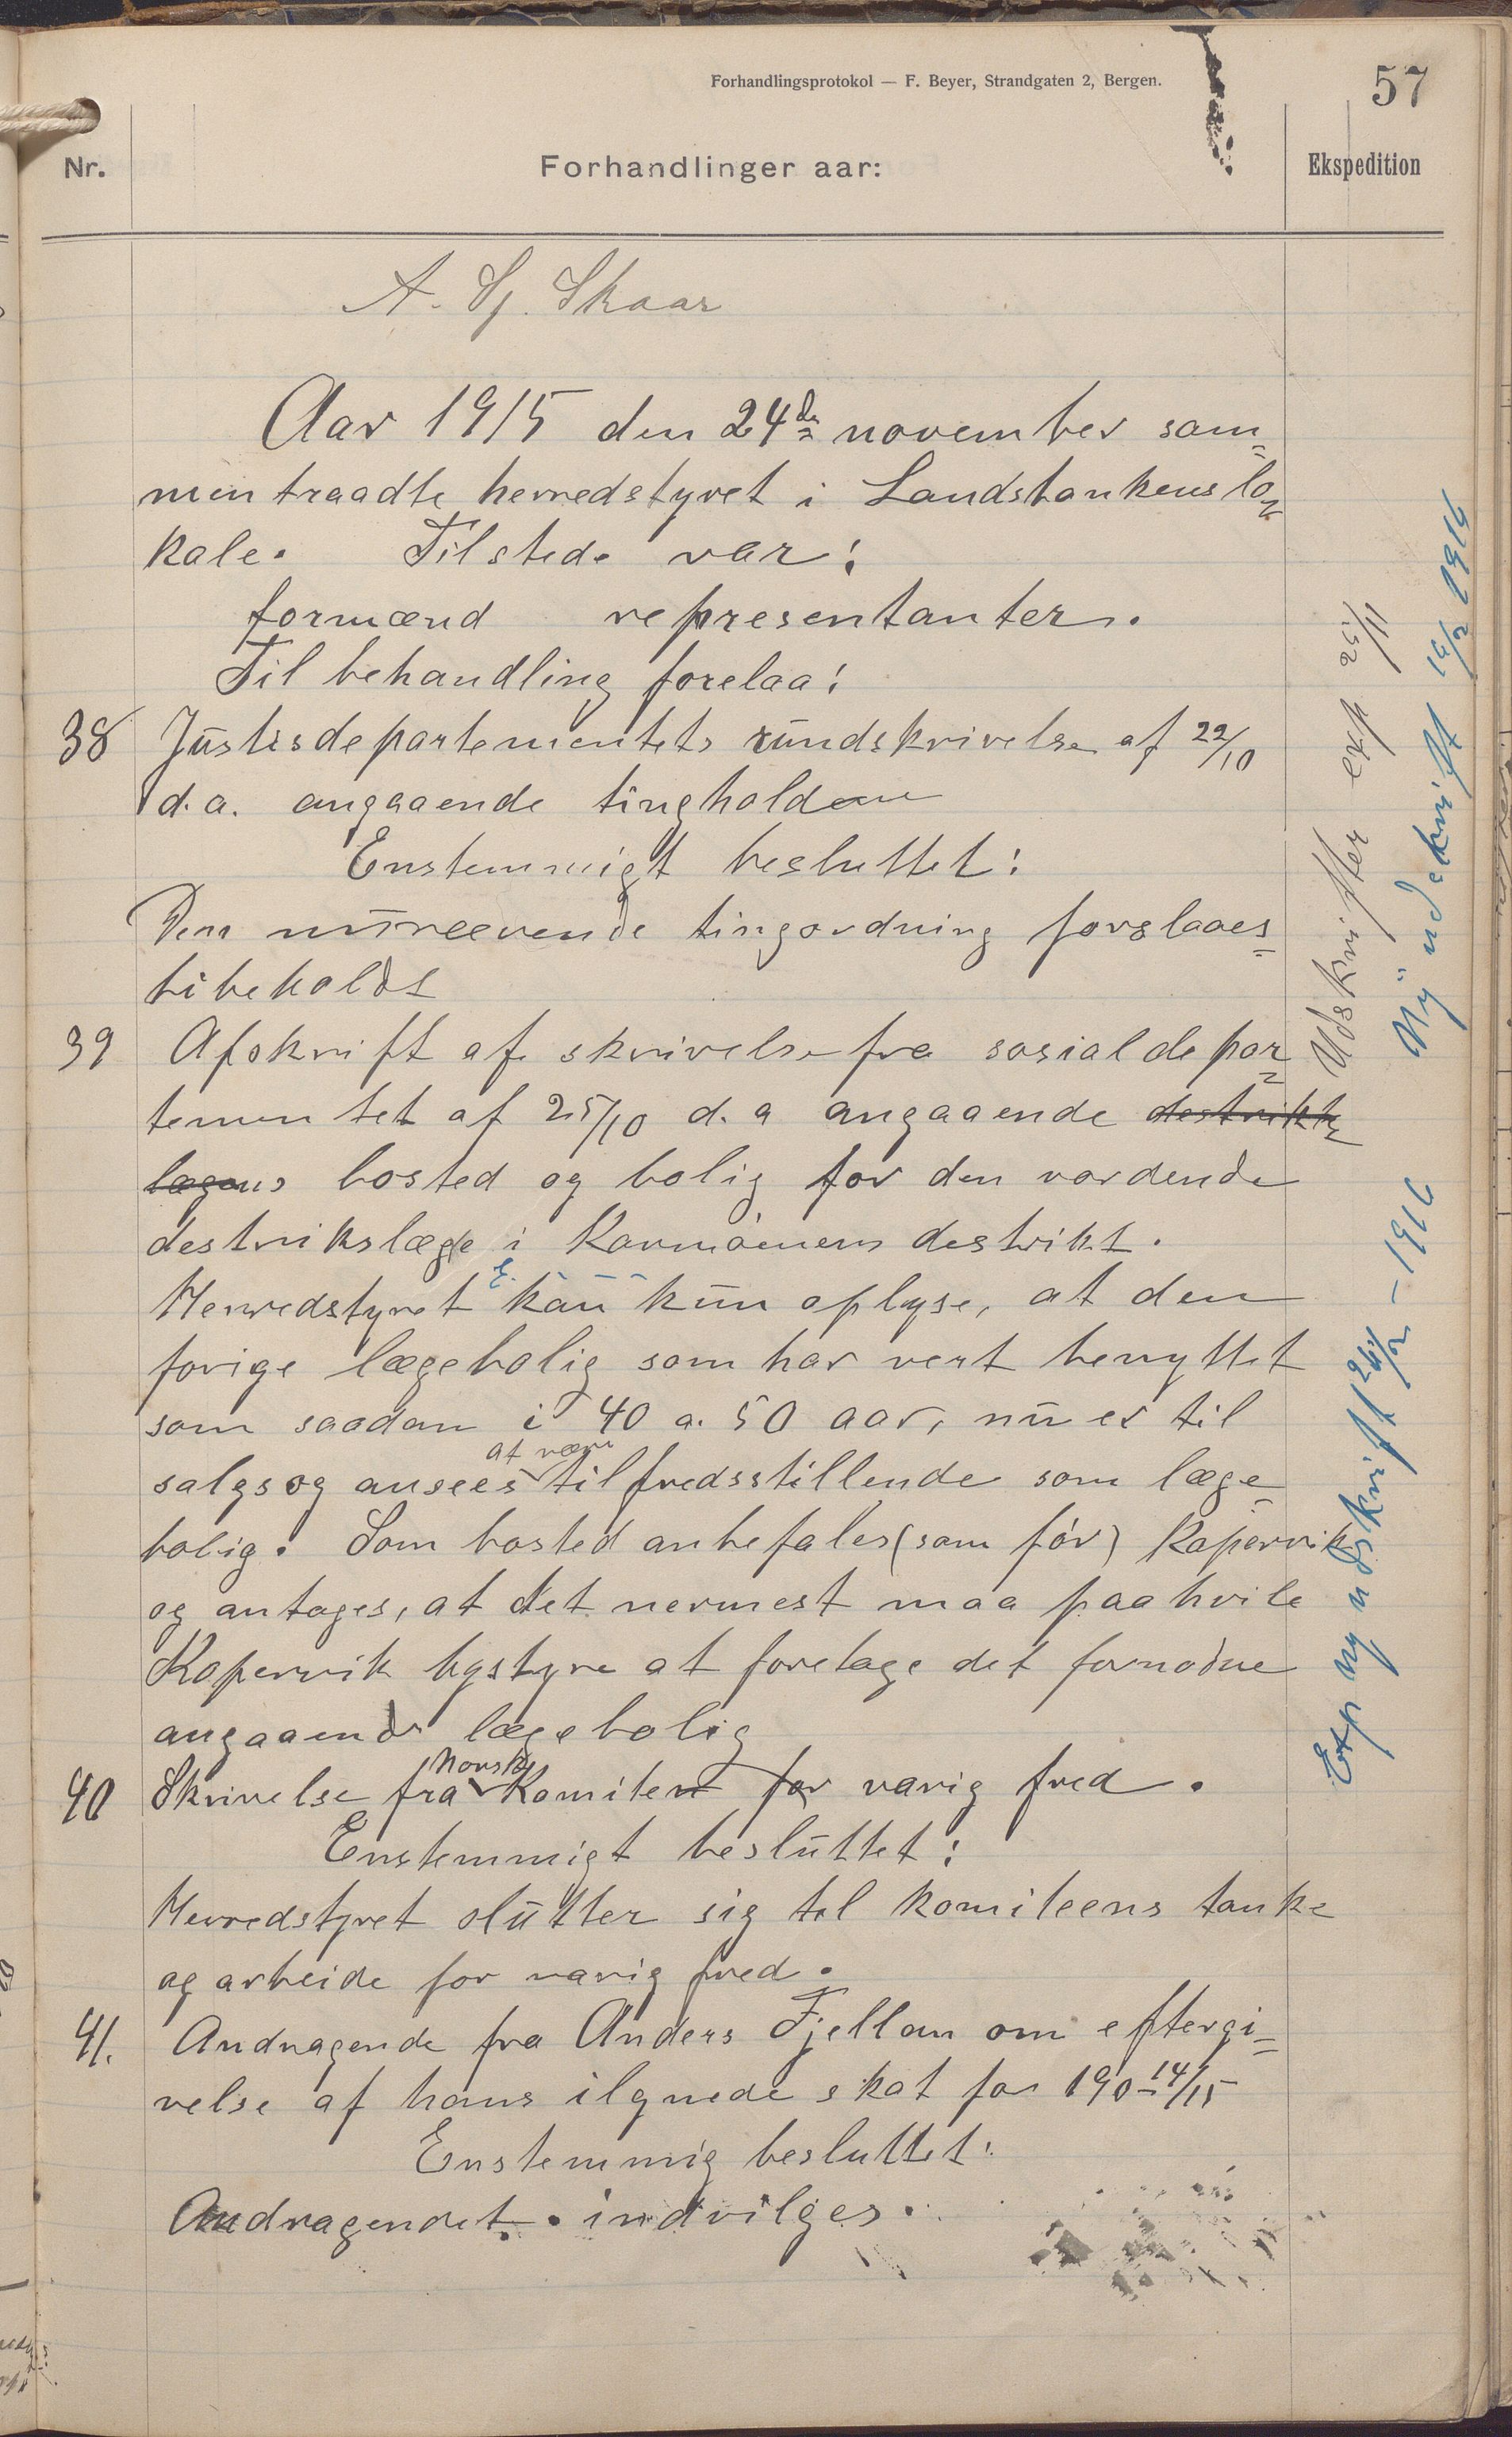 Forhandlingsprotokol — F. Beyer, Strandgaten 2, Bergen.
57
Nr.
Forhandlinger aar:
Ekspedition
A. Sj. Skaar
Aar 1915 den 24de november sam=
mentraadte herredstyret i Landsbankens lo=
kale. Tilstede var:
formænd representanter.
Til behandling forelaa:
38 Justisdepartementets rundskrivelse af 22/10
d.a. angaaende tingholdene
Enstemmigt besluttet:
Den nuveevende tingordning forslaaes
tibeholdt
39 Afskrift af skrivelse fra sosialdepar=
tementet af 25/10 d.a angaaende destrikts
lægens bosted og bolig for den vordende
destrikslæge i Karmøenens destrikt.
Herredstyret kan kun oplyse, at den
forige lægebolig som har vert benyttet
som saadan i 40 a. 50 aar, nu er til
salgs og ansees at være tilfredsstillende som læge=
bolig. Som bosted anbefales (som før) Kopervik
og antages, at det nermest maa paahvile
Kopervik bystyre at foretage det fornødne
angaaende lægebolig
40 Skrivelse fra norsk Komite for varig fred.
Enstemmigt besluttet:
Herredstyret slutter sig tel komiteens tanke
og arbeide for varig fred.
41. Andragende fra Anders Fjellan om eftergi=
velse af hans ilgnede skat for 190-14/15
Enstemmig besluttet:
Andragendet indvilges.
Udskrifter exp 25/11
Ny udskrift 19/2 1916
Exp ny udskrift 24/2 - 1916